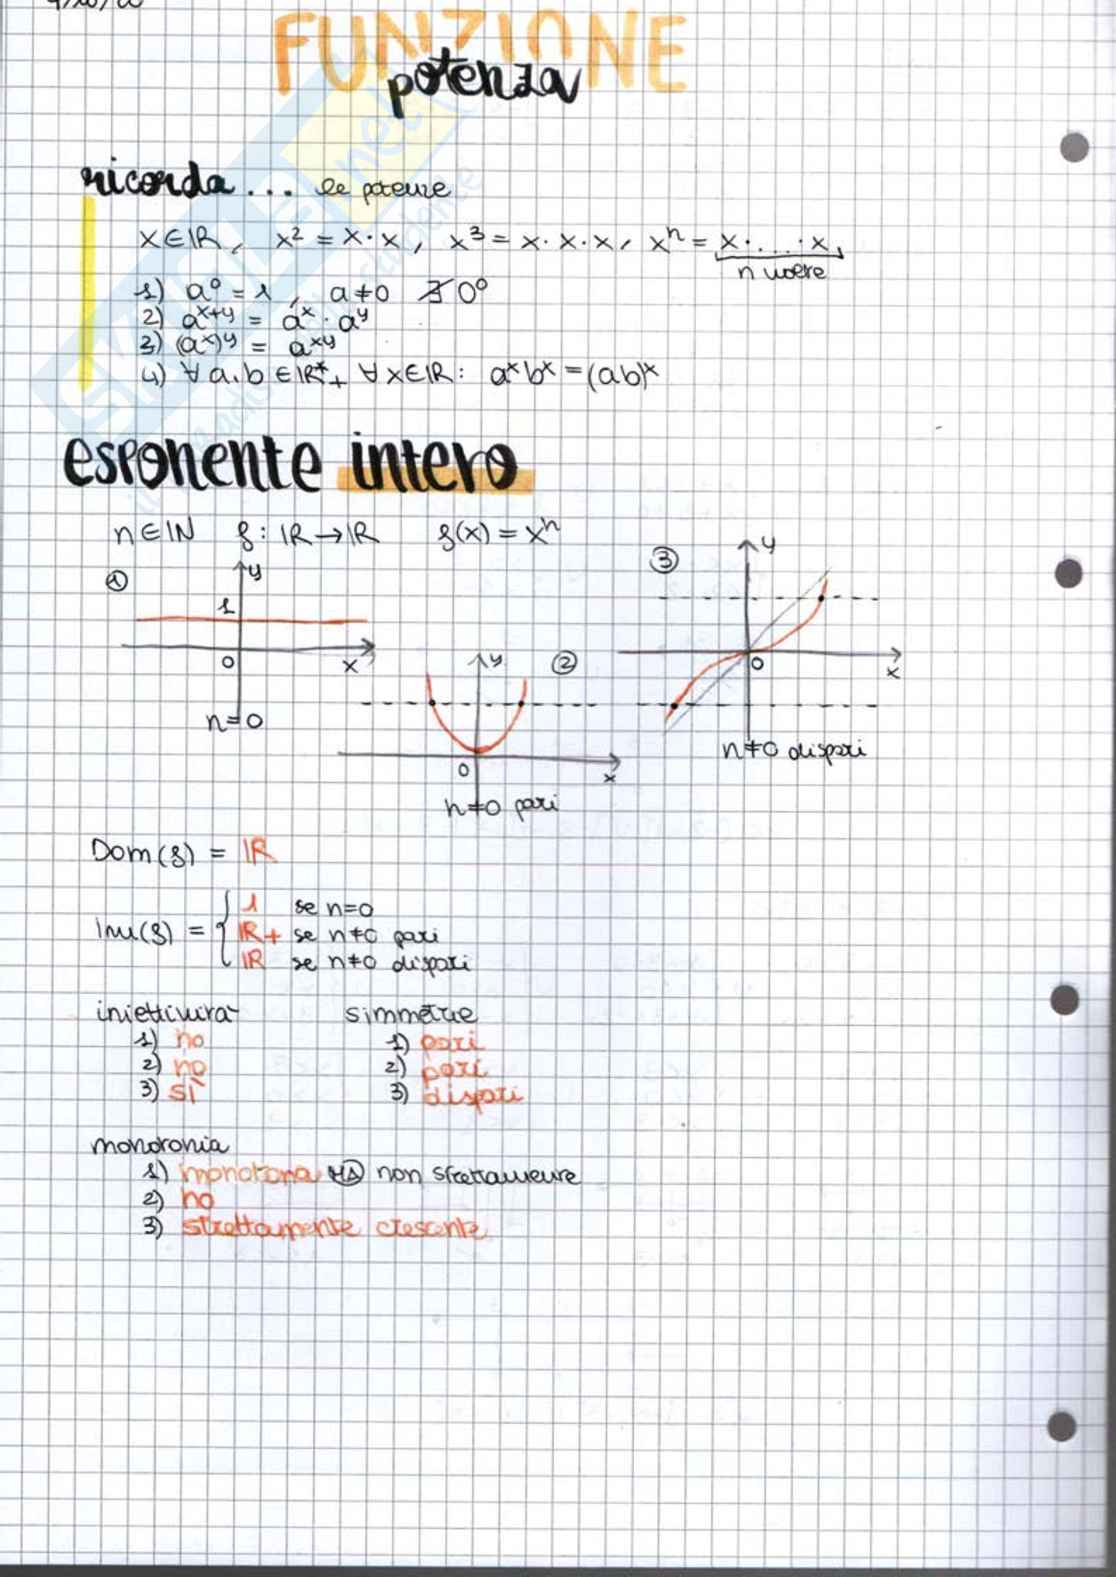 FUNZIONE
potenza
ricorda... le potenze
x∈ℝ, x² = x·x, x³ = x·x·x, xⁿ = x·...·x,
n volte
1) a⁰ = 1, a≠0 ∄ 0⁰
2) a^(x+y) = a^x · a^y
3) (a^x)^y = a^(xy)
4) ∀ a,b ∈ ℝ*₊ ∀x∈ℝ: a^x b^x = (ab)^x
esponente intero
n∈ℕ f: ℝ→ℝ f(x) = xⁿ
① y
1
0 x
n=0
y ②
0 x
n≠0 pari
③ y
0 x
n≠0 dispari
Dom(f) = ℝ
Im(f) = { 1 se n=0
ℝ+ se n≠0 pari
ℝ se n≠0 dispari
iniettività simmetrie
1) no 1) pari
2) no 2) pari
3) sì 3) dispari
monotonia
1) monotona MA non strettamente
2) no
3) strettamente crescente